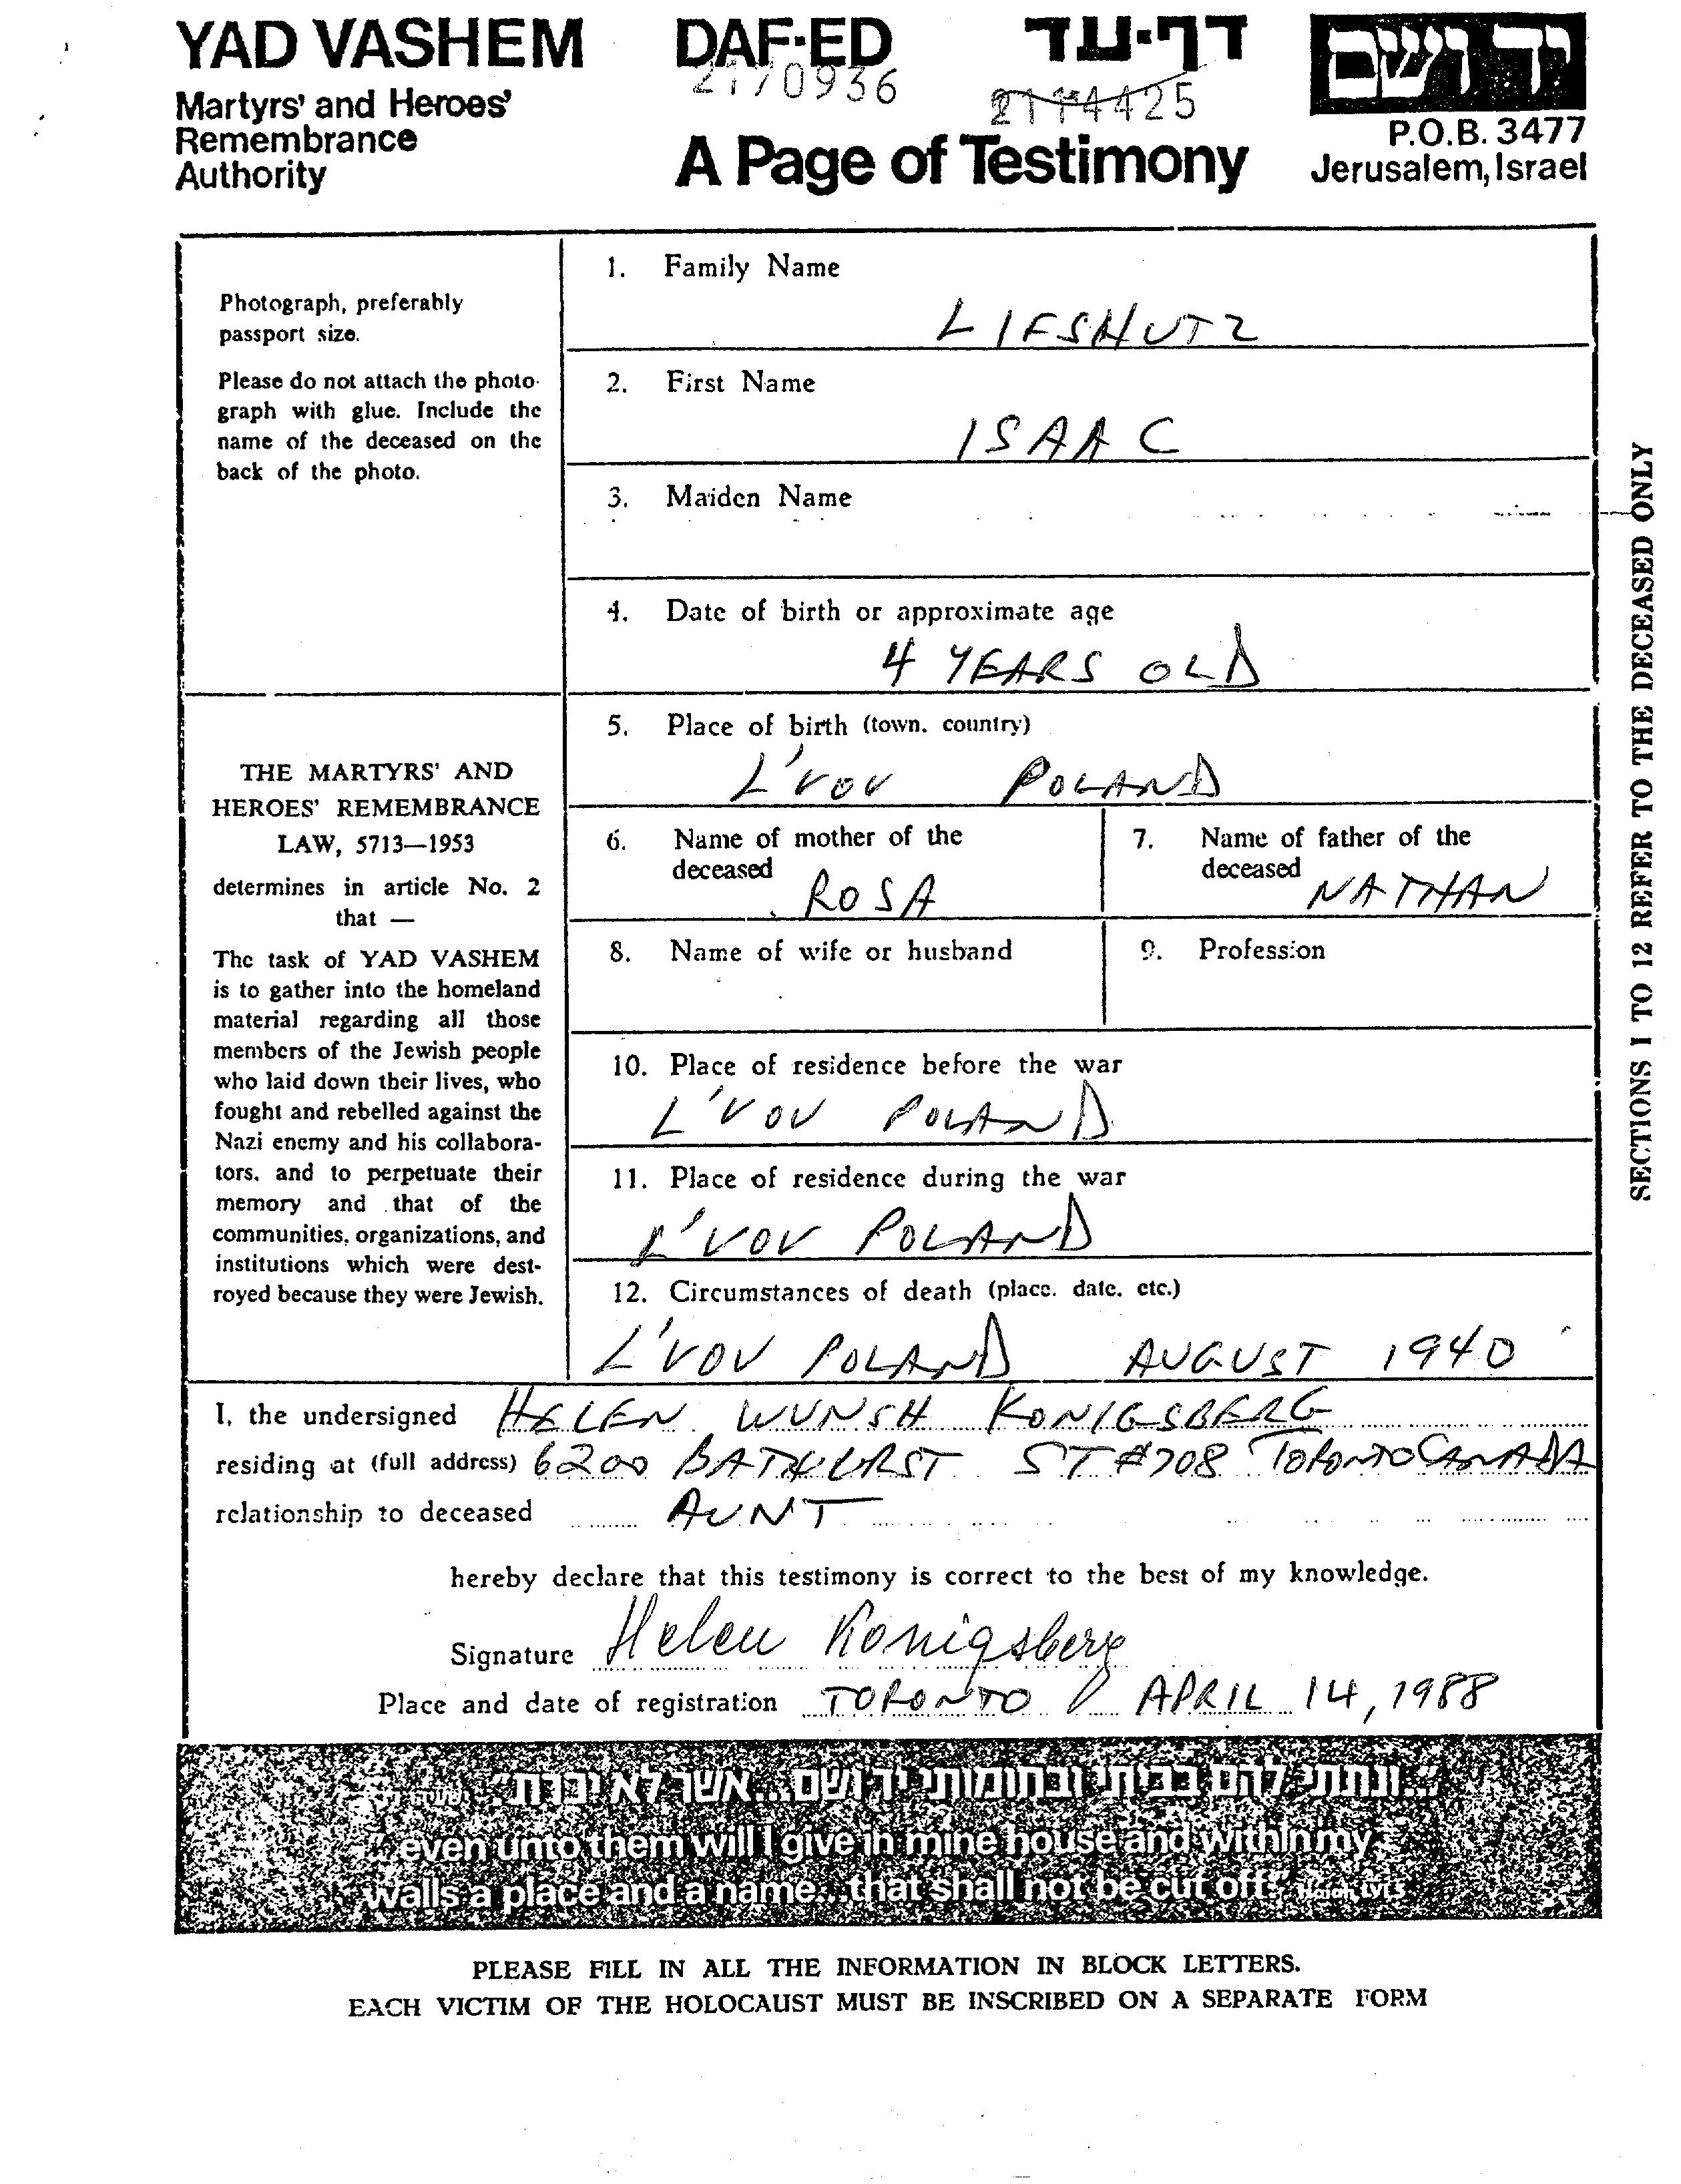 YAD VASHEM
DAF-ED
דף-עד
יד ושם
2170936
2174425
Martyrs' and Heroes'
Remembrance
Authority
A Page of Testimony
P.O.B. 3477
Jerusalem, Israel
Photograph, preferably
passport size.
Please do not attach the photo-
graph with glue. Include the
name of the deceased on the
back of the photo.
THE MARTYRS' AND
HEROES' REMEMBRANCE
LAW, 5713—1953
determines in article No. 2
that —
The task of YAD VASHEM
is to gather into the homeland
material regarding all those
members of the Jewish people
who laid down their lives, who
fought and rebelled against the
Nazi enemy and his collabora-
tors, and to perpetuate their
memory and that of the
communities, organizations, and
institutions which were dest-
royed because they were Jewish.
1. Family Name
LIFSHUTZ
2. First Name
ISAAC
3. Maiden Name
4. Date of birth or approximate age
4 YEARS OLD
5. Place of birth (town, country)
L'VOV POLAND
6. Name of mother of the
deceased
ROSA
7. Name of father of the
deceased
NATHAN
8. Name of wife or husband
9. Profession
10. Place of residence before the war
L'VOV POLAND
11. Place of residence during the war
L'VOV POLAND
12. Circumstances of death (place, date, etc.)
L'VOV POLAND AUGUST 1940
SECTIONS 1 TO 12 REFER TO THE DECEASED ONLY
I, the undersigned HELEN WUNSH KONIGSBERG
residing at (full address) 6200 BATHURST ST #708 TORONTO CANADA
relationship to deceased AUNT
hereby declare that this testimony is correct to the best of my knowledge.
Signature Helen Konigsberg
Place and date of registration TORONTO APRIL 14, 1988
"...ונתתי להם בביתי ובחומותי יד ושם...אשר לא יכרת"
"...even unto them will I give in mine house and within my
walls a place and a name...that shall not be cut off"
PLEASE FILL IN ALL THE INFORMATION IN BLOCK LETTERS.
EACH VICTIM OF THE HOLOCAUST MUST BE INSCRIBED ON A SEPARATE FORM